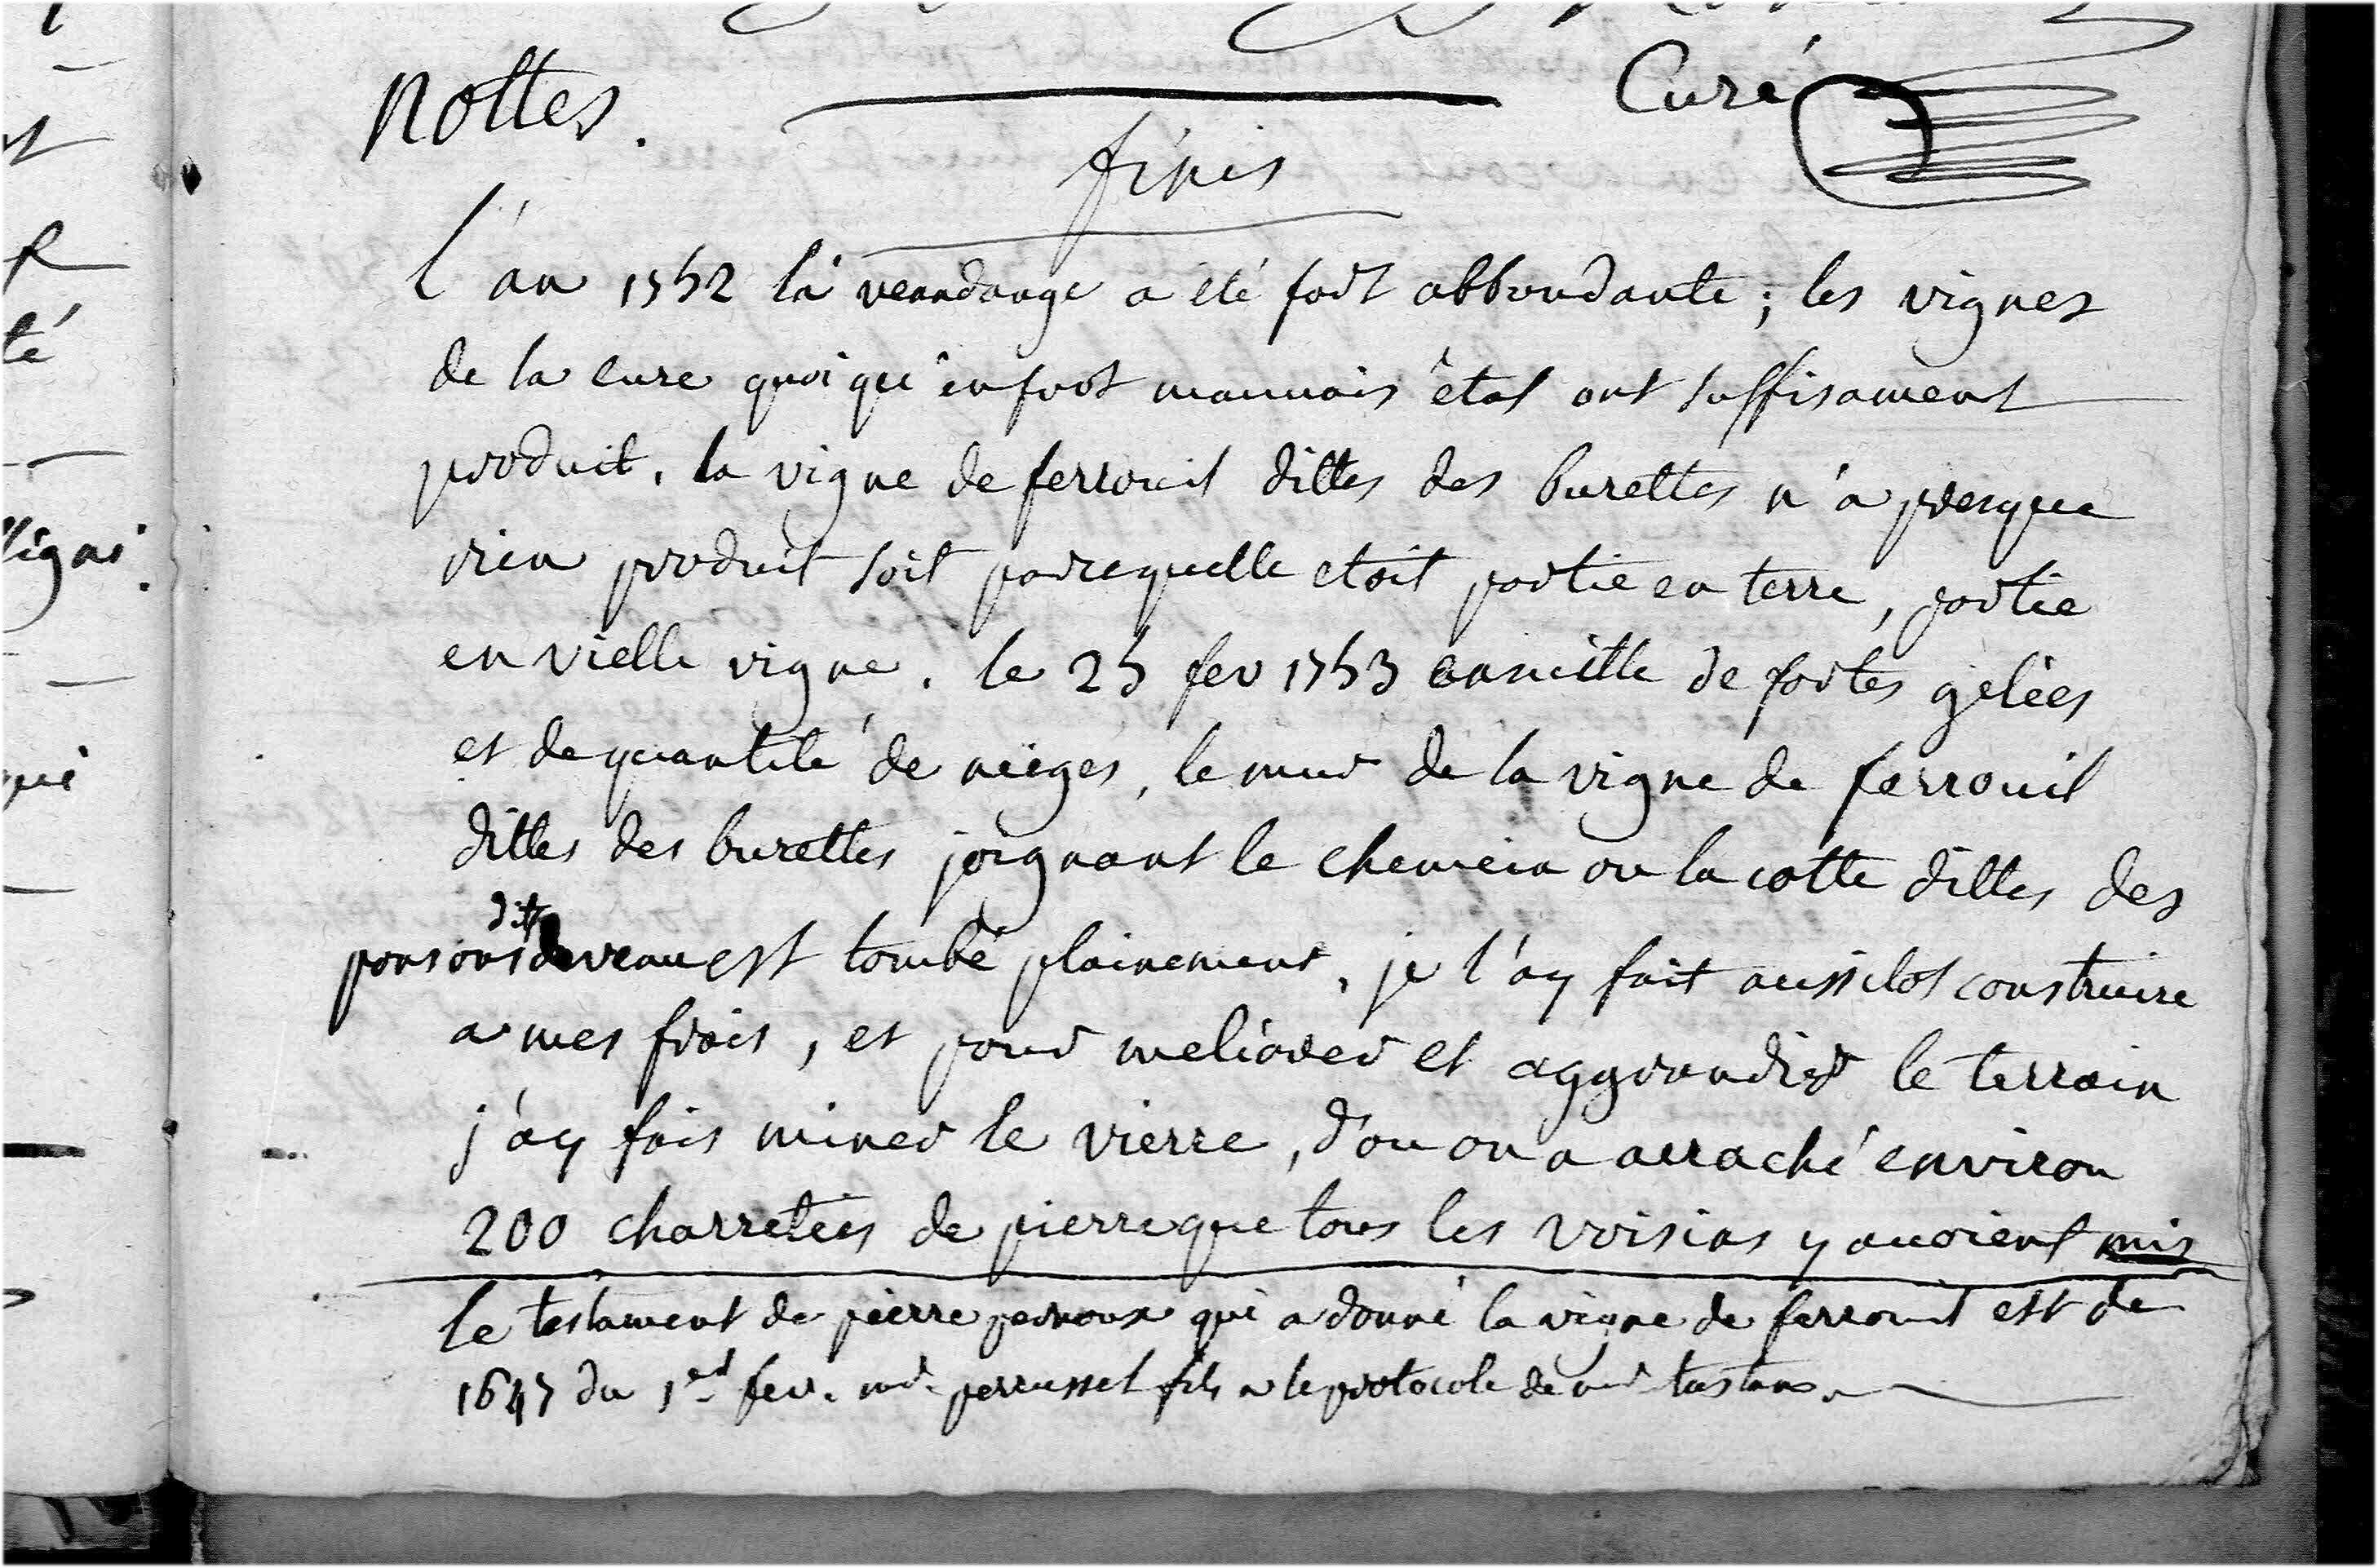 Curé
Nottes.
finis
l'an 1752 la venndange a été fort abbondante; les vignes
de la cure quoi qu'en fort mauvais état ont suffisament
produit. la vigne de ferrouil dittes des burettes n'a presque
rien produit soit parcequelle etoit partie en terre, partie
en vielle vigne. le 25 fev 1753 ensuitte de fortes gelées
et de quantité de neiges, le mur de la vigne de ferrouil
dittes des burettes joignant le chemein ou la cotte dittes des
ponsons dit est tombé plainement, je l'ay fait aussitot construire
a mes frais, et pour meliorer et aggrandir le terrain
j'ay fais miner le vierre, d'ou on a arraché environ
200 charretées de pierre que tous les voisins y avoient mis
le testament de pierre pernoux qui a donné la vigne de ferrouil est de
1647 du 1er fev. mr. perrussel fils a le protocole de mr